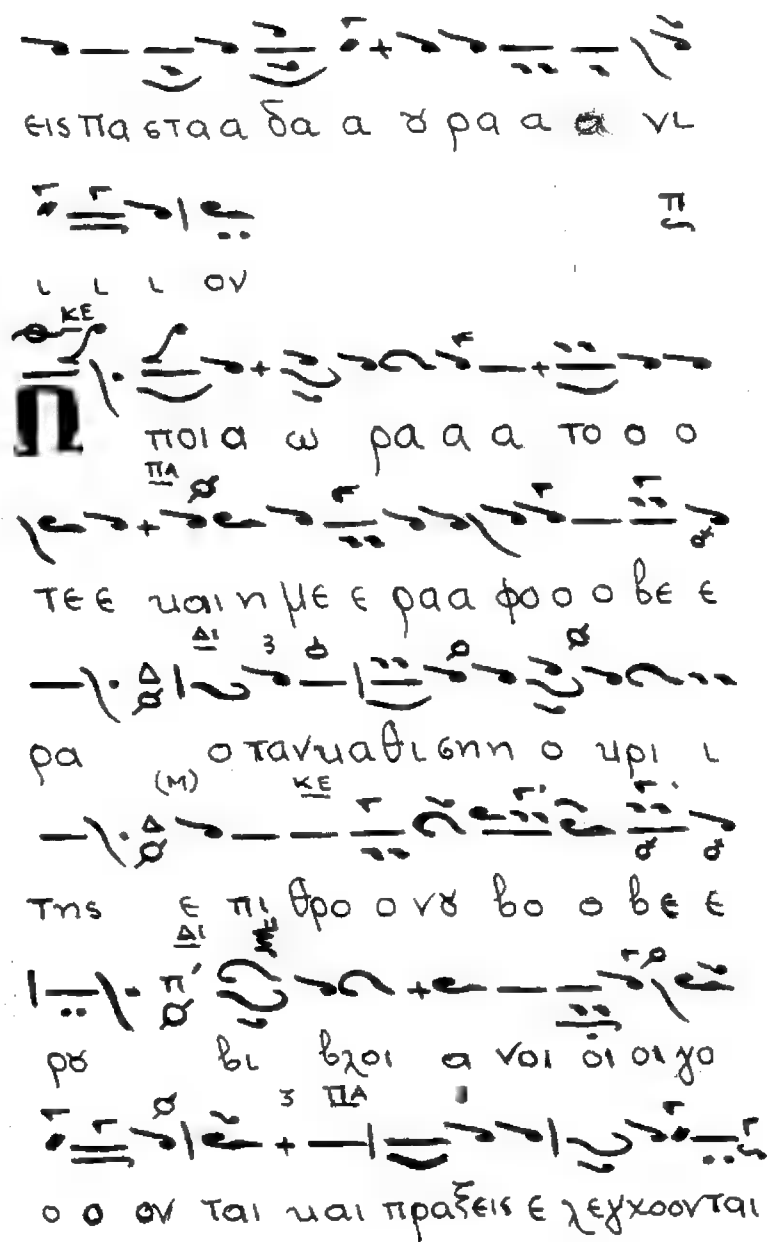 εις πα στα α δα α ȣ ρα α α νι
ι ι ι ον
Π
ποι α ω ρα α α το ο ο
τε ε και η με ε ρα α φο ο ο βε ε
ρα ο ταν καθι ση η ο κρι ι
της ε πι θρο ο νȣ βο ο βε ε
ρȣ βι βλοι α νοι οι οι γο
ο ο ον ται και πραξεις ε λεγχο ονται